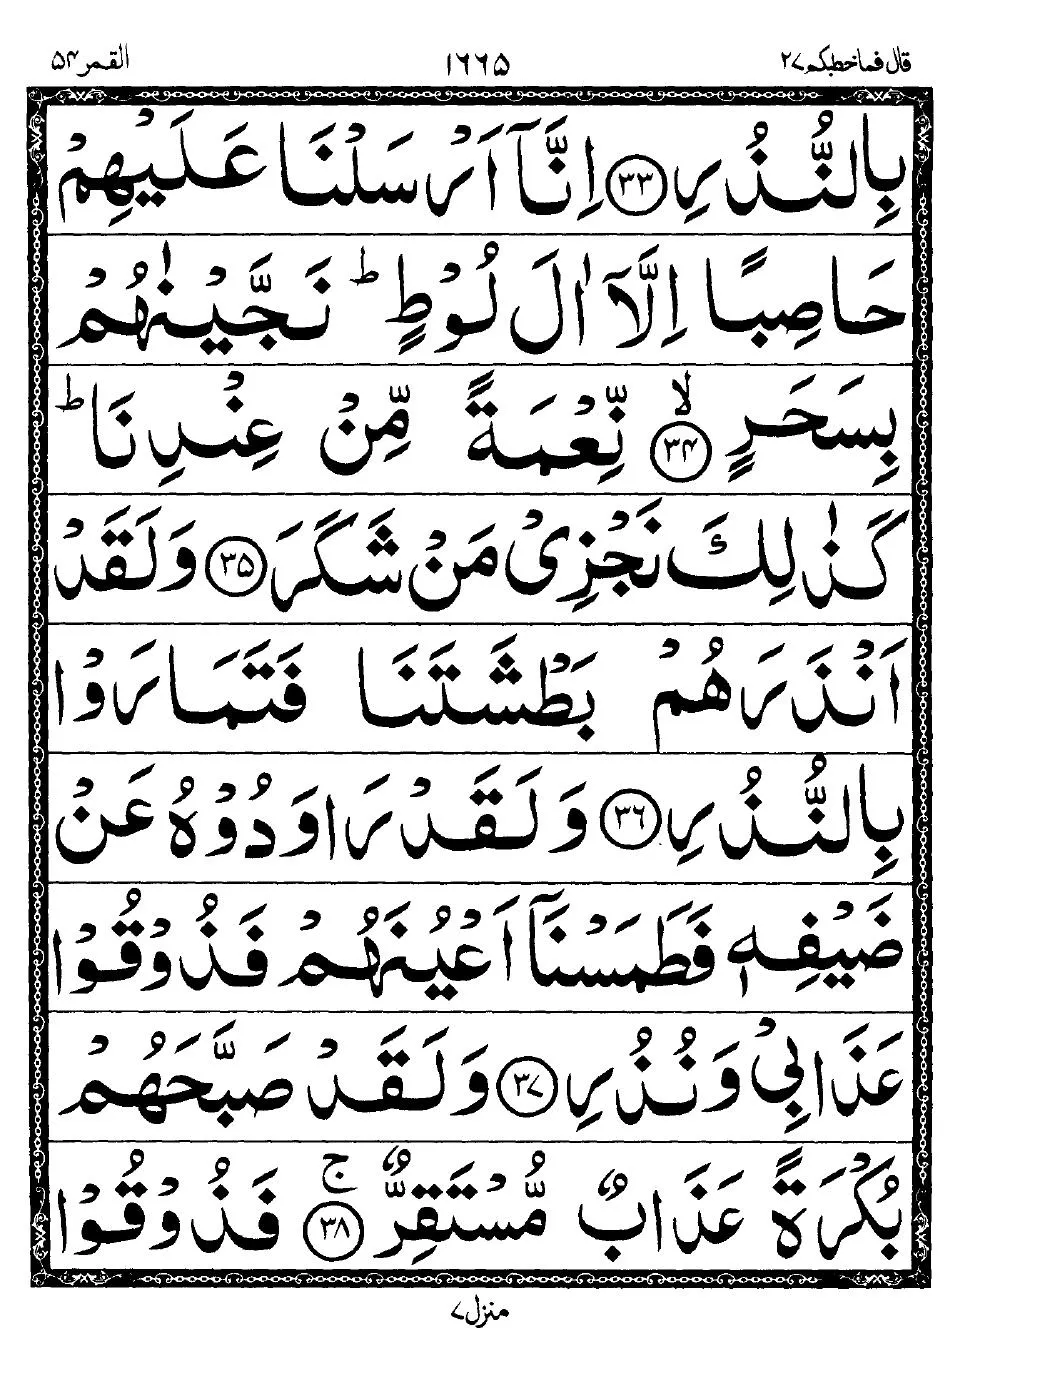 قال فما خطبكم ٢٧ ١٦٦٥ القمر ٥٤
بِالنُّذُرِ ﴿٣٣﴾ اِنَّاۤ اَرْسَلْنَا عَلَيْهِمْ
حَاصِبًا اِلَّاۤ اٰلَ لُوْطٍ ؕ نَجَّيْنٰهُمْ
بِسَحَرٍ ﴿٣٤﴾ ۙ نِّعْمَةً مِّنْ عِنْدِنَا ؕ
كَذٰلِكَ نَجْزِىْ مَنْ شَكَرَ ﴿٣٥﴾ وَلَقَدْ
اَنْذَرَهُمْ بَطْشَتَنَا فَتَمَارَوْا
بِالنُّذُرِ ﴿٣٦﴾ وَلَقَدْ رَاوَدُوْهُ عَنْ
ضَيْفِهٖ فَطَمَسْنَاۤ اَعْيُنَهُمْ فَذُوْقُوْا
عَذَابِىْ وَنُذُرِ ﴿٣٧﴾ وَلَقَدْ صَبَّحَهُمْ
بُكْرَةً عَذَابٌ مُّسْتَقِرٌّ ﴿٣٨﴾ ۚ فَذُوْقُوْا
منزل ٧